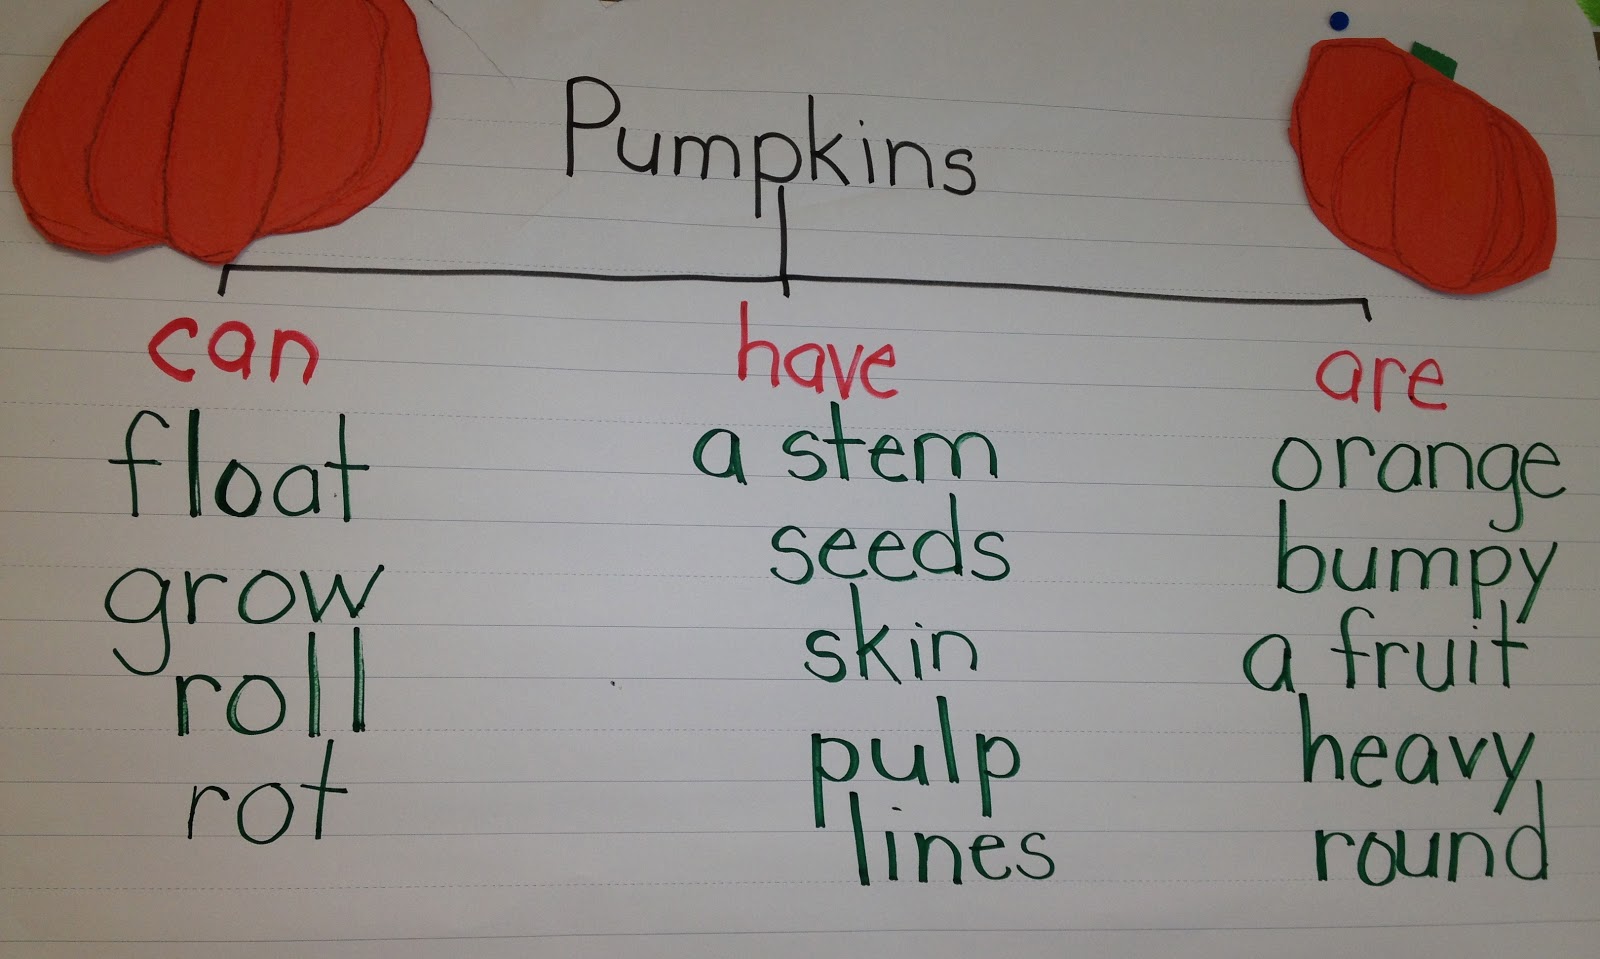 Pumpkins
can
float
grow
roll
rot
have
a stem
seeds
skin
pulp
lines
are
orange
bumpy
a fruit
heavy
round